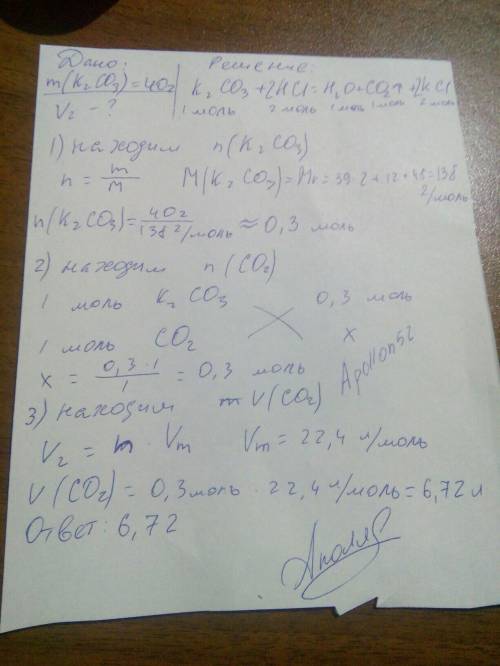 Дано: Решение:
m(K₂CO₃)=40г K₂CO₃+2HCl=H₂O+CO₂↑+2KCl
V₂-? 1 моль 2 моль 1 моль 1 моль 2 моль
1) находим n(K₂CO₃)
n = m/M M(K₂CO₃)=Mr=39·2+12+48=138 г/моль
n(K₂CO₃)= 40г/138 г/моль ≈ 0,3 моль
2) находим n(CO₂)
1 моль K₂CO₃ 0,3 моль
1 моль CO₂ x
x = 0,3·1/1 = 0,3 моль
Apollon52
3) находим m V(CO₂)
V₂ = n · Vm Vm = 22,4 л/моль
V(CO₂) = 0,3 моль · 22,4 л/моль = 6,72 л
Ответ: 6,72